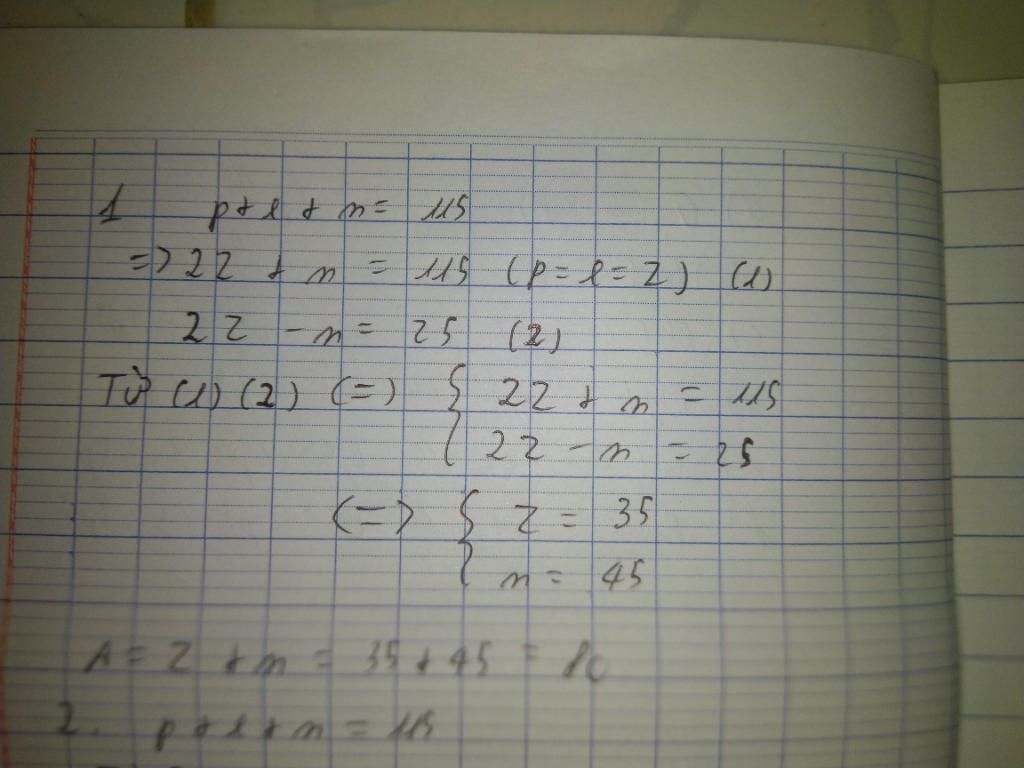 1 p + e + n = 115
=> 2Z + n = 115 (p = e = Z) (1)
2Z - n = 25 (2)
Từ (1) (2) (=) { 2Z + n = 115
2Z - n = 25
<=> { Z = 35
n = 45
A = Z + n = 35 + 45 = 80
2. p + e + n = 115